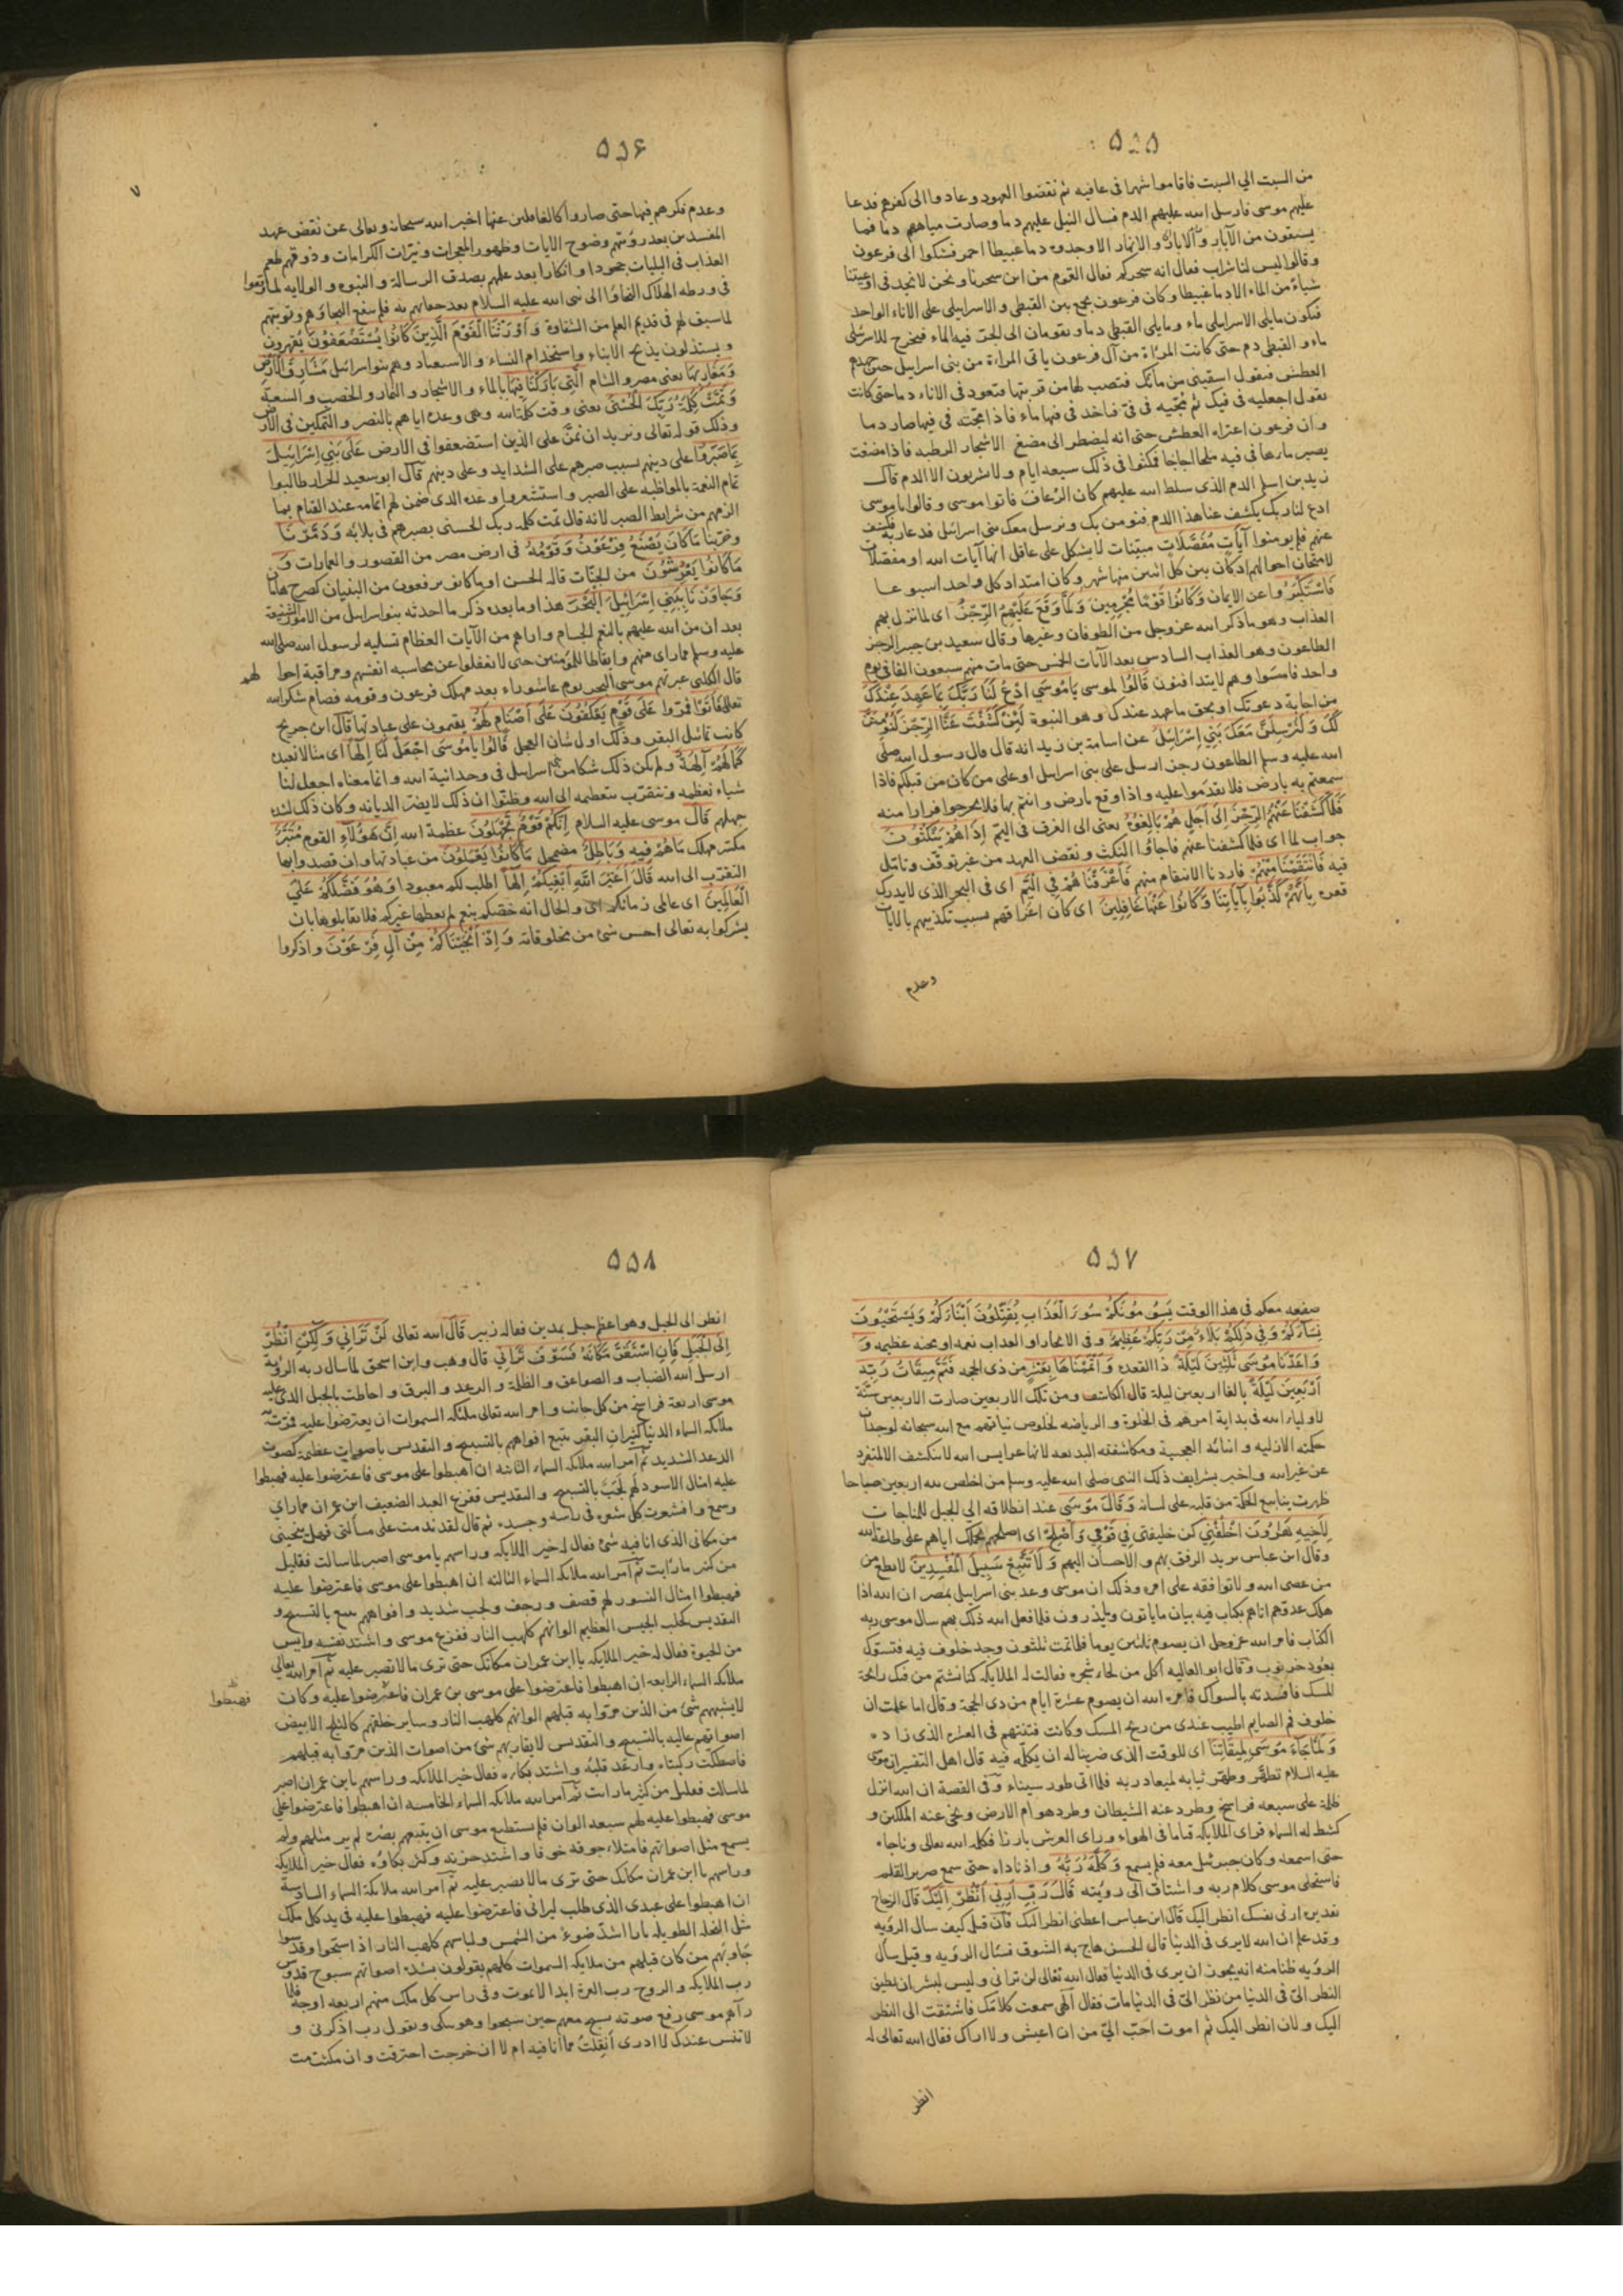 ۵۵۵
من السبت الي السبت فاقاموا شهرا فى عافيه ثم نقضوا العهود وعادوا الى كفرهم فدعا
عليهم موسى فارسل الله عليهم الدم فسال النيل عليهم دما وصارت مياههم دما فما
يستقون من الآبار والانهار الا وجدوه دما عبيطا احمر فشكوا الى فرعون
وقالوا ليس لنا شراب فقال انه سحركم فقال القوم من اين سحرنا ونحن لا نجد فى اوعيتنا
شياء من الماء الا دما عبيطا وكان فرعون يجمع بين القبطى والاسرايلى على الاناء الواحد
فيكون مايلى الاسرايلى ماء ومايلى القبطى دما ويقومان الى الجرة فيها الماء فيخرج للاسرايلى
ماء و القبطى دم حتى كانت المراة من آل فرعون ياتى المراءة من بنى اسرايل حين جهدهم
العطش فيقول اسقينى من مائك فتصب لها من قربتها فيعود فى الاناء دما حتى كانت
يقول اجعليه فى فيك ثم مجيه فى فىّ فياخد فى فيها ماء فاذا مجته فى فيها صار دما
وان فرعون اعتراه العطش حتى انه ليضطر الى مضغ الاشجار الرطبه فاذا مضغت
يصير ماءها فى فيه ملحا اجاجا فمكثوا فى ذلك سبعه ايام ولا يشربون الا الدم قال
زيد بن اسلم الدم الذى سلط الله عليهم كان الرّعاف فاتوا موسى وقالوا يا موسى
ادع لنا ربك يكشف عنا هذا الدم فنومن بك ونرسل معك بنى اسرائيل فدعا ربه فكشف
عنهم فلم يومنوا آيَاتٍ مُفَصَّلَاتٍ مبينات لا يشكل على عاقل انها آيات الله او مفصلات
لامتحان احوالهم اذ كان بين كل اثنين منها شهر وكان امتداد كل واحد اسبوعا
فَاسْتَكْبَرُوا عن الايمان وَكَانُوا قَوْمًا مُجْرِمِينَ وَلَمَّا وَقَعَ عَلَيْهِمُ الرِّجْزُ اى لما نزل بهم
العذاب وهو ما ذكر الله عز وجل من الطوفان وغيرها وقال سعيد بن جبير الرجز
الطاعون وهو العذاب السادس بعد الآيات الخمس حتى مات منهم سبعون الفا فى يوم
واحد فامسوا وهم لا يتدافنون قَالُوا لموسى يَا مُوسَى ادْعُ لَنَا رَبَّكَ بِمَا عَهِدَ عِنْدَكَ
من اجابة دعوتك او بحق ما عهد عندك وهو النبوة لَئِنْ كَشَفْتَ عَنَّا الرِّجْزَ لَنُؤْمِنَنَّ
لَكَ وَلَنُرْسِلَنَّ مَعَكَ بَنِي إِسْرَائِيلَ عن اسامة بن زيد انه قال قال رسول الله صلى
الله عليه وسلم الطاعون رجز ارسل على بنى اسرايل او على من كان من قبلكم فاذا
سمعتم به بارض فلا تقدموا عليه واذا وقع بارض وانتم بها فلا تخرجوا فرارا منه
فَلَمَّا كَشَفْنَا عَنْهُمُ الرِّجْزَ إِلَى أَجَلٍ هُمْ بَالِغُوهُ يعنى الى الغرق فى اليمّ إِذَا هُمْ يَنْكُثُونَ
جواب لما اى فلما كشفنا عنهم فاجاؤا النكث ونقض العهد من غير توقف وتامّل
فيه فَانْتَقَمْنَا مِنْهُمْ فاردنا الانتقام منهم فَأَغْرَقْنَاهُمْ فِي الْيَمِّ اى فى البحر الذى لا يدرك
قعره بِأَنَّهُمْ كَذَّبُوا بِآيَاتِنَا وَكَانُوا عَنْهَا غَافِلِينَ اى كان اغراقهم بسبب تكذيبهم بالايات
وعدم
۵۵۶
۷
وعدم فكرهم فيها حتى صاروا كالغافلين عنها اخبر الله سبحانه وتعالى عن نقض عهد
المفسدين بعد رؤيتهم وضوح الايات وظهور المعجزات ونيّرات الكرامات وذوقهم طعم
العذاب فى البليات جحودا وانكارا بعد علمهم بصدق الرسالة والنبوه والولايه لما وقعوا
فى ورطه الهلاك التجاؤا الى نبى الله عليه السلام بعد جفائهم به فلم ينفع التجاؤهم وتوبتهم
لما سبق لهم فى قديم العلم من الشقاوة وَأَوْرَثْنَا الْقَوْمَ الَّذِينَ كَانُوا يُسْتَضْعَفُونَ يُقهرون
و يستذلون بذبح الابناء واستخدام النساء والاستعباد وهم بنو اسرائيل مَشَارِقَ الْأَرْضِ
وَمَغَارِبَهَا يعنى مصر والشام الَّتِي بَارَكْنَا فِيهَا بالماء والاشجار والثمار والخصب والسعة
وَتَمَّتْ كَلِمَةُ رَبِّكَ الْحُسْنَى يعنى وفت كلمة الله وهى وعده اياهم بالنصر والتمكين فى الارض
وذلك قوله تعالى ونريد ان نمنّ على الذين استضعفوا فى الارض عَلَى بَنِي إِسْرَائِيلَ
بِمَا صَبَرُوا على دينهم بسبب صبرهم على الشدايد وعلى دينهم قال ابو سعيد الخراز طالبوا
تمام النعمة بالمواظبه على الصبر واستشعروا وعده الذى ضمن لهم اتمامه عند القيام بما
الزمهم من شرايط الصبر لانه قال تمت كلمه ربك الحسنى بصبرهم فى بلائه وَدَمَّرْنَا
وخربنا مَا كَانَ يَصْنَعُ فِرْعَوْنُ وَقَوْمُهُ فى ارض مصر من القصور والعمارات وَ
مَا كَانُوا يَعْرِشُونَ من الجنّات قاله الحسن او ما كانوا يرفعون من البنيان كصرح هامان
وَجَاوَزْنَا بِبَنِي إِسْرَائِيلَ الْبَحْرَ هذا وما بعده ذكر ما احدثه بنو اسرايل من الامور الشنيعة
بعد ان منّ الله عليهم بالنعم الجسام واراهم من الآيات العظام تسليه لرسول الله صلى الله
عليه وسلم مما راى منهم وايقاظا للمؤمنين حتى لا يغفلوا عن محاسبه انفسهم ومراقبة احوالهم
قال الكلبى عبر بهم موسى البحر يوم عاشوراء بعد مهلك فرعون وقومه فصام شكرا لله
تعالى فَأَتَوْا فمرّوا عَلَى قَوْمٍ يَعْكُفُونَ عَلَى أَصْنَامٍ لَهُمْ يقيمون على عبادتها قال ابن جريج
كانت تماثيل البقر وذلك اول شان العجل قَالُوا يَا مُوسَى اجْعَلْ لَنَا إِلَهًا اى مثالا نعبده
كَمَا لَهُمْ آلِهَةٌ ولم يكن ذلك شكا من بنى اسرايل فى وحدانية الله وانما معناه اجعل لنا
شياء نعظمه ونتقرّب بتعظيمه الى الله وظنّوا ان ذلك لا يضرّ الديانه وكان ذلك لشدة
جهلهم قَالَ موسى عليه السلام إِنَّكُمْ قَوْمٌ تَجْهَلُونَ عظمة الله إِنَّ هَؤُلَاءِ القوم مُتَبَّرٌ
مكسّر مهلك مَا هُمْ فِيهِ وَبَاطِلٌ مضمحل مَا كَانُوا يَعْمَلُونَ من عبادتها وان قصدوا بها
التقرّب الى الله قَالَ أَغَيْرَ اللَّهِ أَبْغِيكُمْ إِلَهًا اطلب لكم معبودا وَهُوَ فَضَّلَكُمْ عَلَى
الْعَالَمِينَ اى عالمى زمانكم اى والحال انه خصّكم بنعم لم يعطها غيركم فلا تقابلوها بان
يشركوا به تعالى اخس شئ من مخلوقاته وَإِذْ أَنْجَيْنَاكُمْ مِنْ آلِ فِرْعَوْنَ واذكروا
۵۵۷
صنيعه معكم فى هذا الوقت يَسُومُونَكُمْ سُوءَ الْعَذَابِ يُقَتِّلُونَ أَبْنَاءَكُمْ وَيَسْتَحْيُونَ
نِسَاءَكُمْ وَفِي ذَلِكُمْ بَلَاءٌ مِنْ رَبِّكُمْ عَظِيمٌ وفى الانجاء او العذاب نعمه او محنه عظيمه وَ
وَاعَدْنَا مُوسَى ثَلَاثِينَ لَيْلَةً ذا القعده وَأَتْمَمْنَاهَا بِعَشْرٍ من ذى الحجه فَتَمَّ مِيقَاتُ رَبِّهِ
أَرْبَعِينَ لَيْلَةً بالغا اربعين ليلة قال الكاشف ومن تلك الاربعين صارت الاربعين سنّة
لاولياء الله فى بداية امرهم فى الخلوة والرياضه لخلوص نياتهم مع الله سبحانه لوجدان
حكمته الازليه وانبائه العجيبة ومكاشفته البديعه لانها عرايس الله لا ينكشف الا لمنفرد
عن غير الله واخبر بشرايف ذلك النبى صلى الله عليه وسلم من اخلص لله اربعين صباحا
ظهرت ينابيع الحكمة من قلبه على لسانه وَقَالَ مُوسَى عند انطلاقه الى الجبل للمناجات
لِأَخِيهِ هَارُونَ اخْلُفْنِي كن خليفتى فِي قَوْمِي وَأَصْلِحْ اى اصلحهم بحملك اياهم على طاعة الله
وقال ابن عباس يريد الرفق بهم والاحسان اليهم وَلَا تَتَّبِعْ سَبِيلَ الْمُفْسِدِينَ لا تطع من
من عصى الله ولا توافقه على امره وذلك ان موسى وعد بنى اسرايل بمصر ان الله اذا
هلك عدوهم اتاهم بكتاب فيه بيان ما ياتون ويذرون فلما فعل الله ذلك بهم سال موسى ربه
الكتاب فامر الله عز وجل ان يصوم ثلثين يوما فلما تمت ثلثون وجد خلوف فيه فتسوك
بعود خرنوب وقال ابو العاليه اكل من لحاء شجره فقالت له الملايكه كنا نشتم من فيك رائحة
المسك فافسدته بالسواك فامره الله ان يصوم عشرة ايام من ذى الحجة وقال اما علمت ان
خلوف فم الصايم اطيب عندى من ريح المسك وكانت فتنتهم فى العشره الذى زاده
وَلَمَّا جَاءَ مُوسَى لِمِيقَاتِنَا اى للوقت الذى ضربنا له ان يكلّمه فيه قال اهل التفسير ان موسى
عليه السلام تطهّر وطهّر ثيابه لميعاد ربه فلما اتى طور سيناء وفى القصة ان الله انزل
ظلمة على سبعه فراسخ وطرد عنه الشيطان وطرد هوام الارض ونحّى عنه الملكين و
كشط له السماء فراى الملايكه قياما فى الهواء وراى العرش بارزا فكلمه الله تعالى وناجاه
حتى اسمعه وكان جبرئيل معه فلم يسمع وَكَلَّمَهُ رَبُّهُ وادناه حتى سمع صرير القلم
فاستحلى موسى كلام ربه واشتاق الى رؤيته قَالَ رَبِّ أَرِنِي أَنْظُرْ إِلَيْكَ قال الزجاج
تقديره ارنى نفسك انظر اليك قال ابن عباس اعطنى انظر اليك فان قيل كيف سال الرؤيه
وقد علم ان الله لا يرى فى الدنيا قال الحسن هاج به الشوق فسال الرؤيه وقيل سال
الرؤيه ظنا منه انه يجوز ان يرى فى الدنيا فقال الله تعالى لن ترانى وليس لبشر ان يطيق
النظر الىّ فى الدنيا من نظر الىّ فى الدنيا مات فقال الهى سمعت كلامك فاشتقت الى النظر
اليك ولان انظر اليك ثم اموت احبّ الىّ من ان اعيش ولا اراك فقال الله تعالى له
انظر
۵۵۸
انظر الى الجبل وهو اعظم جبل بمدين فقال له زبير قَالَ الله تعالى لَنْ تَرَانِي وَلَكِنِ انْظُرْ
إِلَى الْجَبَلِ فَإِنِ اسْتَقَرَّ مَكَانَهُ فَسَوْفَ تَرَانِي قال وهب وابن اسحق لما سال ربه الرؤية
ارسل الله الضباب والصواعق والظلمة والرعد والبرق واحاطت بالجبل الذى عليه
موسى اربعة فراسخ من كل جانب وامر الله تعالى ملئكة السموات ان يعترضوا عليه فمرّت به
ملائكة السماء الدنيا كثيران البقر تنبع افواههم بالتسبيح والتقديس باصوات عظيمة كصوت
الرعد الشديد ثم امر الله ملائكة السماء الثانية ان اهبطوا على موسى فاعترضوا عليه فهبطوا
عليه امثال الاسود لهم لجَبٌ بالتسبيح والتقديس ففزع العبد الضعيف ابن عمران مما راى
وسمع واقشعرت كل شعره فى راسه وجسده ثم قال لقد ندمت على مسالتى فهل ينجينى
من مكانى الذى انا فيه شئ فقال له خير الملايكه وراسهم يا موسى اصبر لما سالت فقليل
من كثير ما رايت ثم امر الله ملائكه السماء الثالثه ان اهبطوا على موسى فاعترضوا عليه
فهبطوا امثال النسور لهم قصف ورجف ولجب شديد وافواههم تنبع بالتسبيح و
التقديس كجلب الجيش العظيم الوانهم كلهب النار ففزع موسى واشتد نفسه وايس
من الحيوة فقال له خير الملايكه يا ابن عمران مكانك حتى ترى ما لا تصبر عليه ثم امر الله تعالى
ملائكه السماء الرابعه ان اهبطوا فاعترضوا على موسى بن عمران فاعترضوا عليه وكان
فهبطوا
لا يشبههم شئ من الذين مرّوا به قبلهم الوانهم كلهب النار وساير خلقهم كالثلج الابيض
اصواتهم عاليه بالتسبيح والتقديس لا يقاربهم شئ من اصوات الذين مرّوا به قبلهم
فاصطكّت ركبتاه وارتعد قلبُه واشتدّ بكاؤه فقال خير الملايكه وراسهم يا بن عمران اصبر
لما سالت فقليل من كثير ما رايت ثم امر الله ملائكه السماء الخامسه ان اهبطوا فاعترضوا على
موسى فهبطوا عليه لهم سبعه الوان فلم يستطيع موسى ان يتبعهم بصره لم ير مثلهم ولم
يسمع مثل اصواتهم فامتلاء جوفه خوفا واشتد حزنه وكثر بكاؤه فقال خير الملايكه
وراسهم يا ابن عمران مكانك حتى ترى ما لا تصبر عليه ثم امر الله ملائكة السماء السادسة
ان اهبطوا على عبدى الذى طلب ليرانى فاعترضوا عليه فهبطوا عليه فى يد كل ملك
مثل النخلة الطويله نارا اشدّ ضوءً من الشمس ولباسهم كلهب النار اذا سبّحوا وقدّسوا
جاوبهم من كان قبلهم من ملايكه السموات كلهم يقولون بشده اصواتهم سبوح قدوس
رب الملايكه والروح رب العزة ابدا لا يموت وفى راس كل ملك منهم اربعه اوجه فلما
رآهم موسى رفع صوته يسبح معهم حين سبحوا وهو يبكى ويقول رب اذكرنى و
لا تنس عبدك لا ادرى أنفلتُ مما انا فيه ام لا ان خرجت احترقت وان مكثت مت